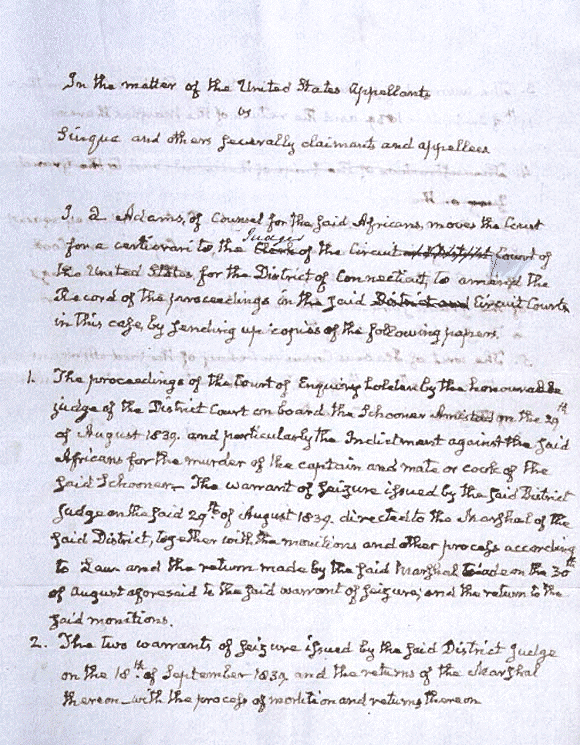 In the matter of the United States Appellants
vs
Sinqua and others severally claimants and appellees
J. Q Adams, of Counsel for the said Africans, moves the Court
for a certiorari to the Judges of the Circuit Court of
the United States for the District of Connecticut, to amend the
Record of the proceedings in the said District and Circuit Courts
in this case, by sending up copies of the following papers.
1. The proceedings of the Court of Enquiry holden by the honourable
judge of the District Court on board the Schooner Amistad on the 29th
of August 1839. and particularly the Indictment against the said
Africans for the murder of the captain and mate or cook of the
said Schooner – The warrant of seizure issued by the said District
Judge on the said 29th of August 1839. directed to the Marshal of the
said District, together with the monitions and other process according
to Law and the return made by the said Marshal on the 30
of August aforesaid to the said warrant of seizure, and the return to the
said monitions.
2. The two warrants of seizure issued by the said District Judge
on the 18th of September 1839 and the returns of the Marshal
thereon – with the process of monition and returns thereon